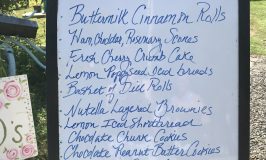 Buttermilk Cinnamon Rolls
Ham, Cheddar, Rosemary Scones
Fresh Cherry Crumb Cake
Lemon Poppyseed Iced breads
Basket of Dill Rolls
Nutella Layered Brownies
Lemon Iced Shortbread
Chocolate Chunk Cookies
Chocolate Peanut Butter Cookies